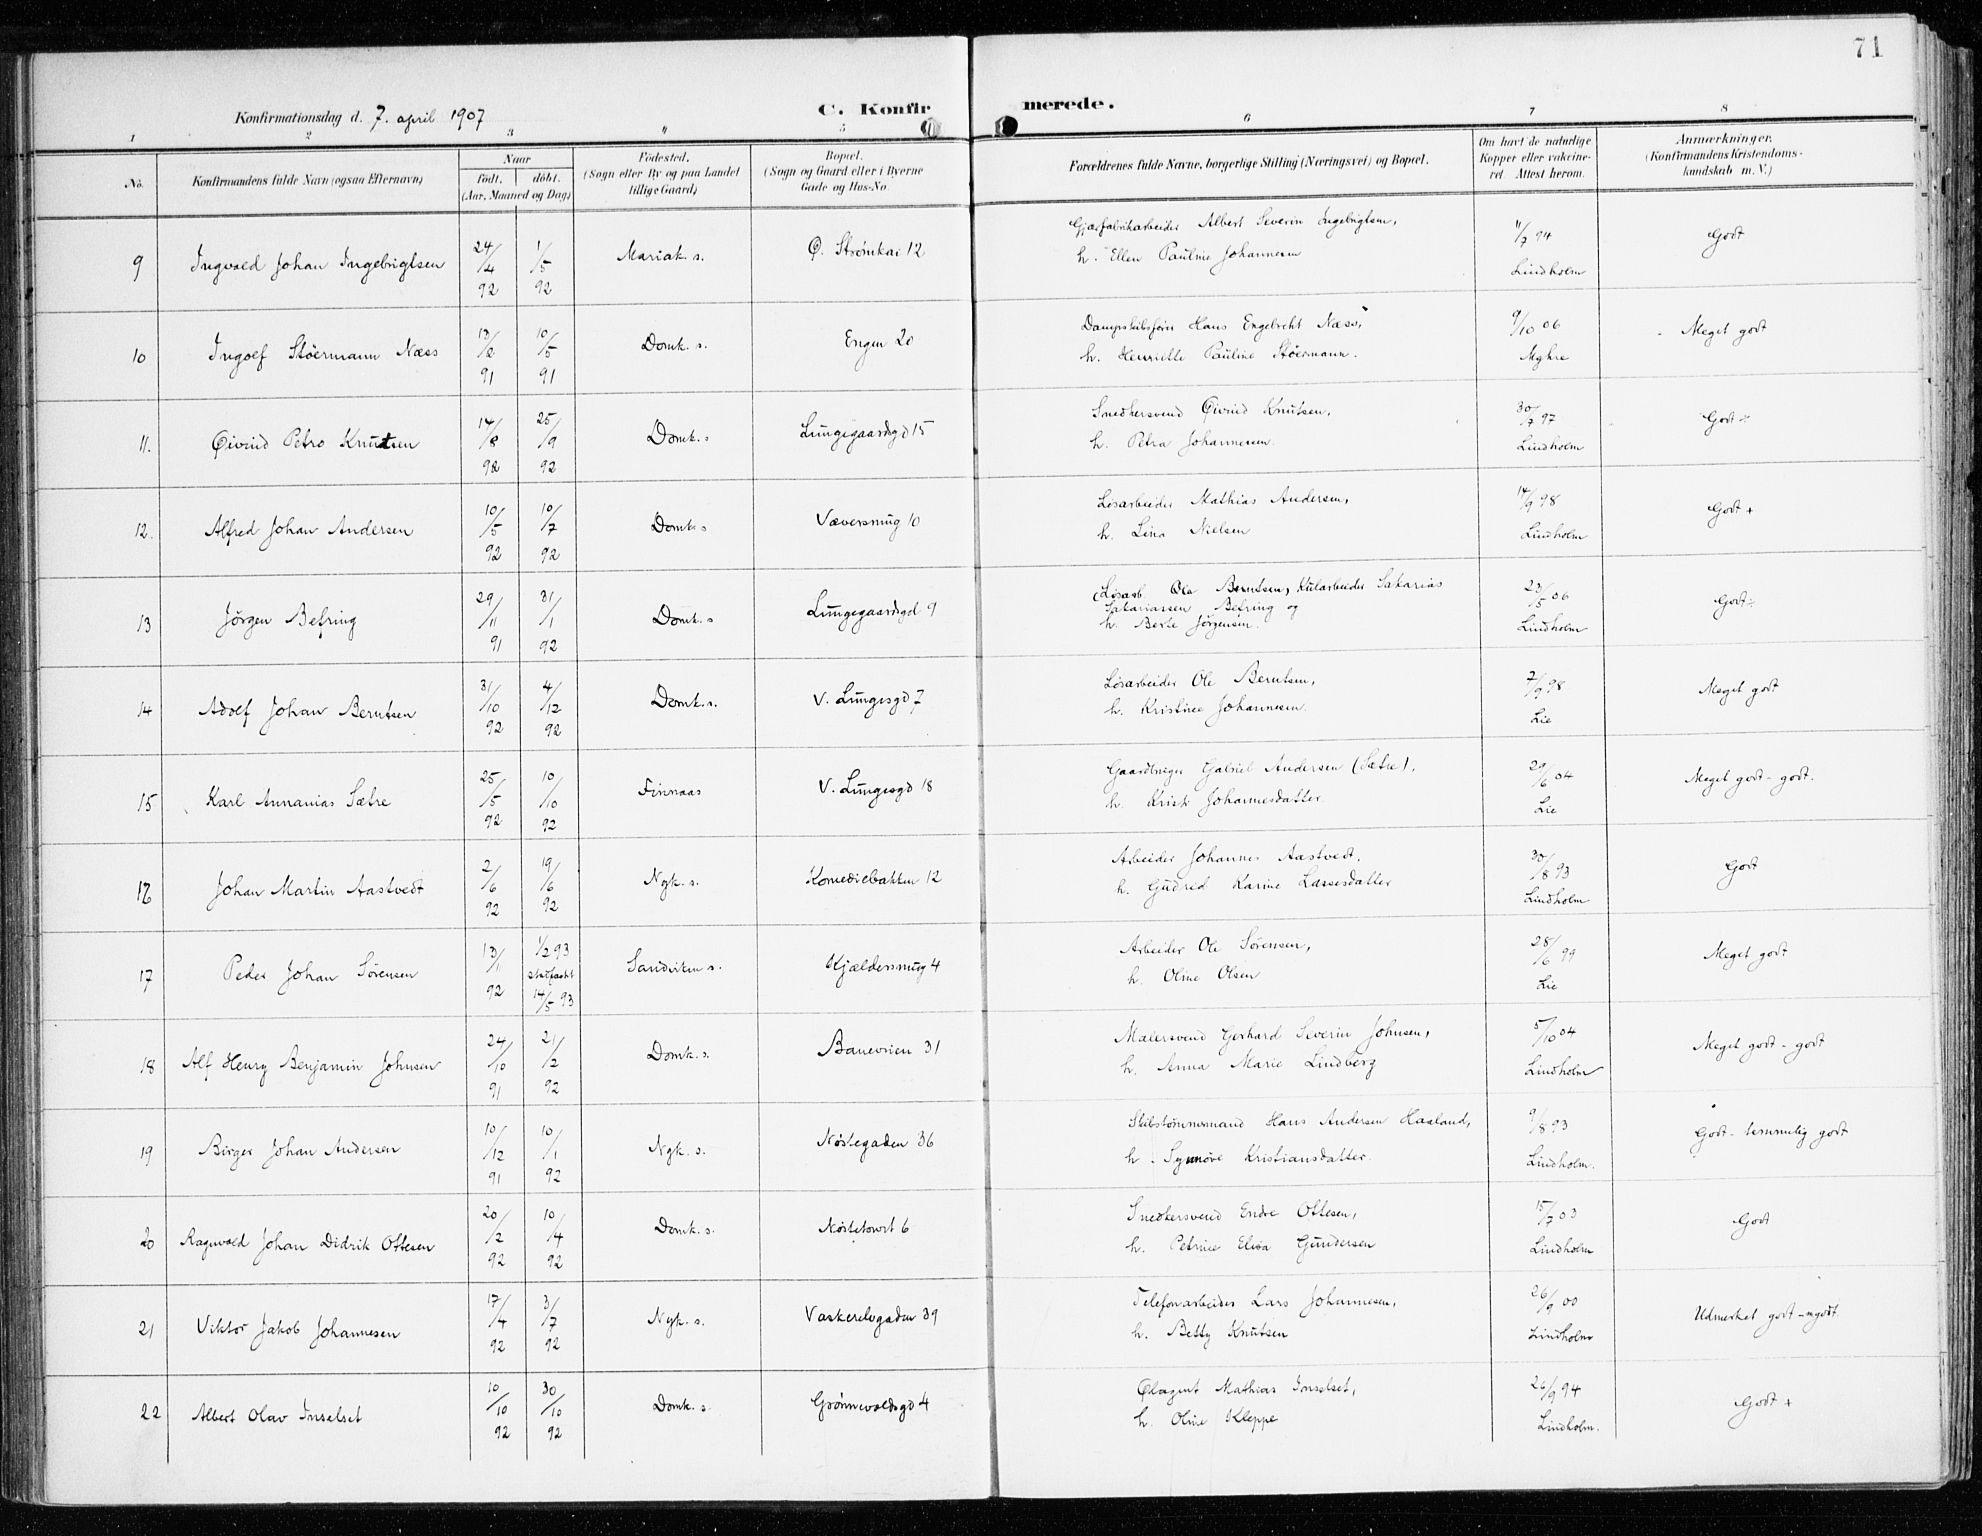 71
Konfirmationsdag d. 7. april 1907
C. Konfirmerede.
1 2 3 4 5 6 7 8
No.
Konfirmandens fulde Navn (ogsaa Efternavn)
Naar
födt. döbt.
(Aar, Maaned og Dag)
Födested.
(Sogn eller By og paa Landet
tillige Gaard)
Bopæl.
(Sogn og Gaard eller i Byerne
Gade og Hus-No.
Forældrenes fulde Navne, borgerlige Stilling (Næringsvei) og Bopæl.
Om havt de naturlige
Kopper eller vakcine-
ret. Attest herom.
Anmærkninger.
(Konfirmandens Kristendoms-
kundskab m. V.)
9 Ingvald Johan Ingebrigtsen 24/4 92 1/5 92 Mariak. s. Ø. Strømkai 12
Gjærfabrikarbeider Albert Severin Ingebrigtsen,
h. Ellen Pauline Johannesen
11/7 94 Lindholm
Godt
10 Ingolf Störmann Næss 13/2 91 10/5 91 Domk. s. Engen 20
Dampskibsfører Hans Engelbrecht Næss,
h. Henriette Pauline Störmann.
9/10 06
Meget godt
11. Øivind Petro Knutsen 14/8 92 25/9 92 Domk. s Lungegaardsgd 15
Snedkersvend Øivind Knutsen,
h. Petra Johannesen
30/7 97 Lindholm
Godt ÷
12. Alfred Johan Andersen 10/5 92 10/7 92 Domk. s Væversmug 10
Løsarbeider Mathias Andersen,
h. Lina Nielsen
14/9 98 Lindholm
Godt +
13 Jörgen Befring 29/11 91 31/1 92 Domk. s Lungegaardsgd 9
(Løsarb. Ole Berntsen, Kularbeider Sakarias
Sakariassen Befring og
h. Berte Jörgensen.
23/5 06 Lindholm
Godt ÷
14 Adolf Johan Berntsen 31/10 92 4/12 92 Domk. s. V. Lungegd 7
Løsarbeider Ole Berntsen,
h. Kristine Johannesen.
7/9 98 Lie
Meget godt
15 Karl Annanias Sætre 25/5 92 10/10 92 Finnaas V. Lungegd 18
Gaardbruger Gabriel Andersen (Sætre),
h. Kristi Johannesdatter
29/6 04 Lie
Meget godt - godt.
16 Johan Martin Aastvedt 2/6 92 19/6 92 Nyk. s. Komediebakken 12
Arbeider Johannes Aastvedt,
h. Gudred Karine Lassesdatter
30/8 93 Lindholm
Godt
17 Peder Johan Sörensen 13/1 92 1/2 93 stadfæstet 14/5 93 Sandviken s. Kjældersmug 4
Arbeider Ole Sörensen,
h. Oline Olsen
28/6 99 Lie
Meget godt
18 Alf Henry Benjamin Johnsen 24/10 91 21/2 92 Domk. s. Baneveien 31
Malersvend Gerhard Severin Johnsen,
h. Anna Marie Lindberg
5/10 04 Lindholm
Meget godt - godt
19 Birger Johan Andersen 10/12 91 10/1 92 Nyk. s. Nøstegaden 36
Skibstømmermand Hans Andersen Haaland,
h. Synnöve Kristiansdatter
9/8 93 Lindholm.
Godt - temmelig godt
20 Ragnvald Johan Didrik Ottesen 20/2 92 10/4 92 Domk. s. Nøstetorvt 6
Snedkersvend Endre Ottesen,
h. Petrine Elisa Gundersen
15/7 03 Lindholm
Godt
21 Viktor Jakob Johannesen 17/4 92 3/7 92 Nyk. s. Vaskerelvgaden 39
Telefonarbeider Lars Johannesen,
h. Betty Knutsen
26/9 00 Lindholm
Udmerket godt - mgodt
22 Albert Olav Inselset 10/10 92 30/10 92 Domk. s. Grönnevoldsgd 4
Ølagent Mathias Inselset,
h. Oline Kleppe
26/9 94 Lindholm.
Godt +